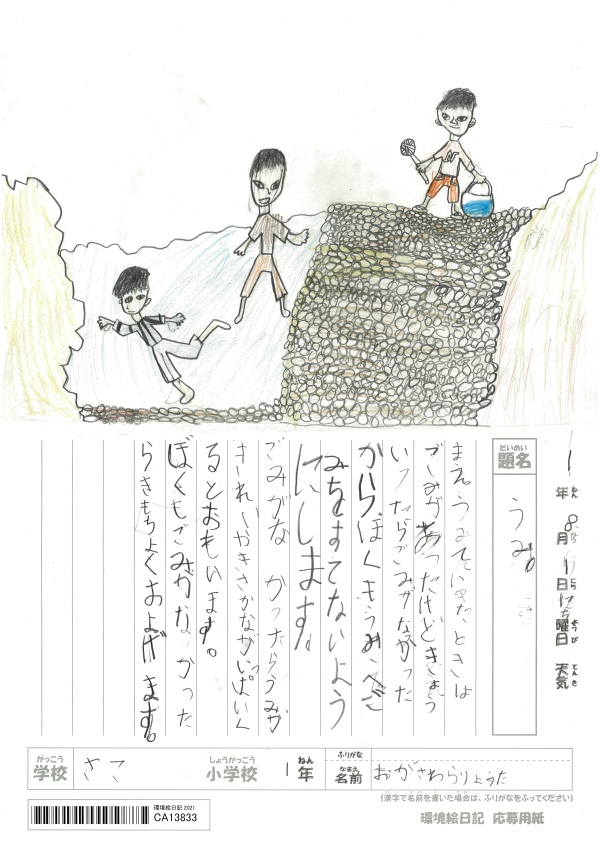 年 8月 日 曜日 天気
ねん がつ にち ようび てんき
だいめい
題名
うみ。
まえうみでいきたときは
ごみがあったけどきょう
いったらごみがなかった
からぼくもうみへご
みをすてないよう
にします。
ごみがなかったらうみが
さかながいっぱいく
るとおもいます。
ぼくもごみがなかった
らきもちよくおよげます。
がっこう しょうがっこう ねん ふりがな
学校 さこ 小学校 1年 名前 おがさわらりょうた
なまえ
(漢字で名前を書いた場合は、ふりがなをふってください)
環境絵日記 2021
CA13833
環境絵日記 応募用紙